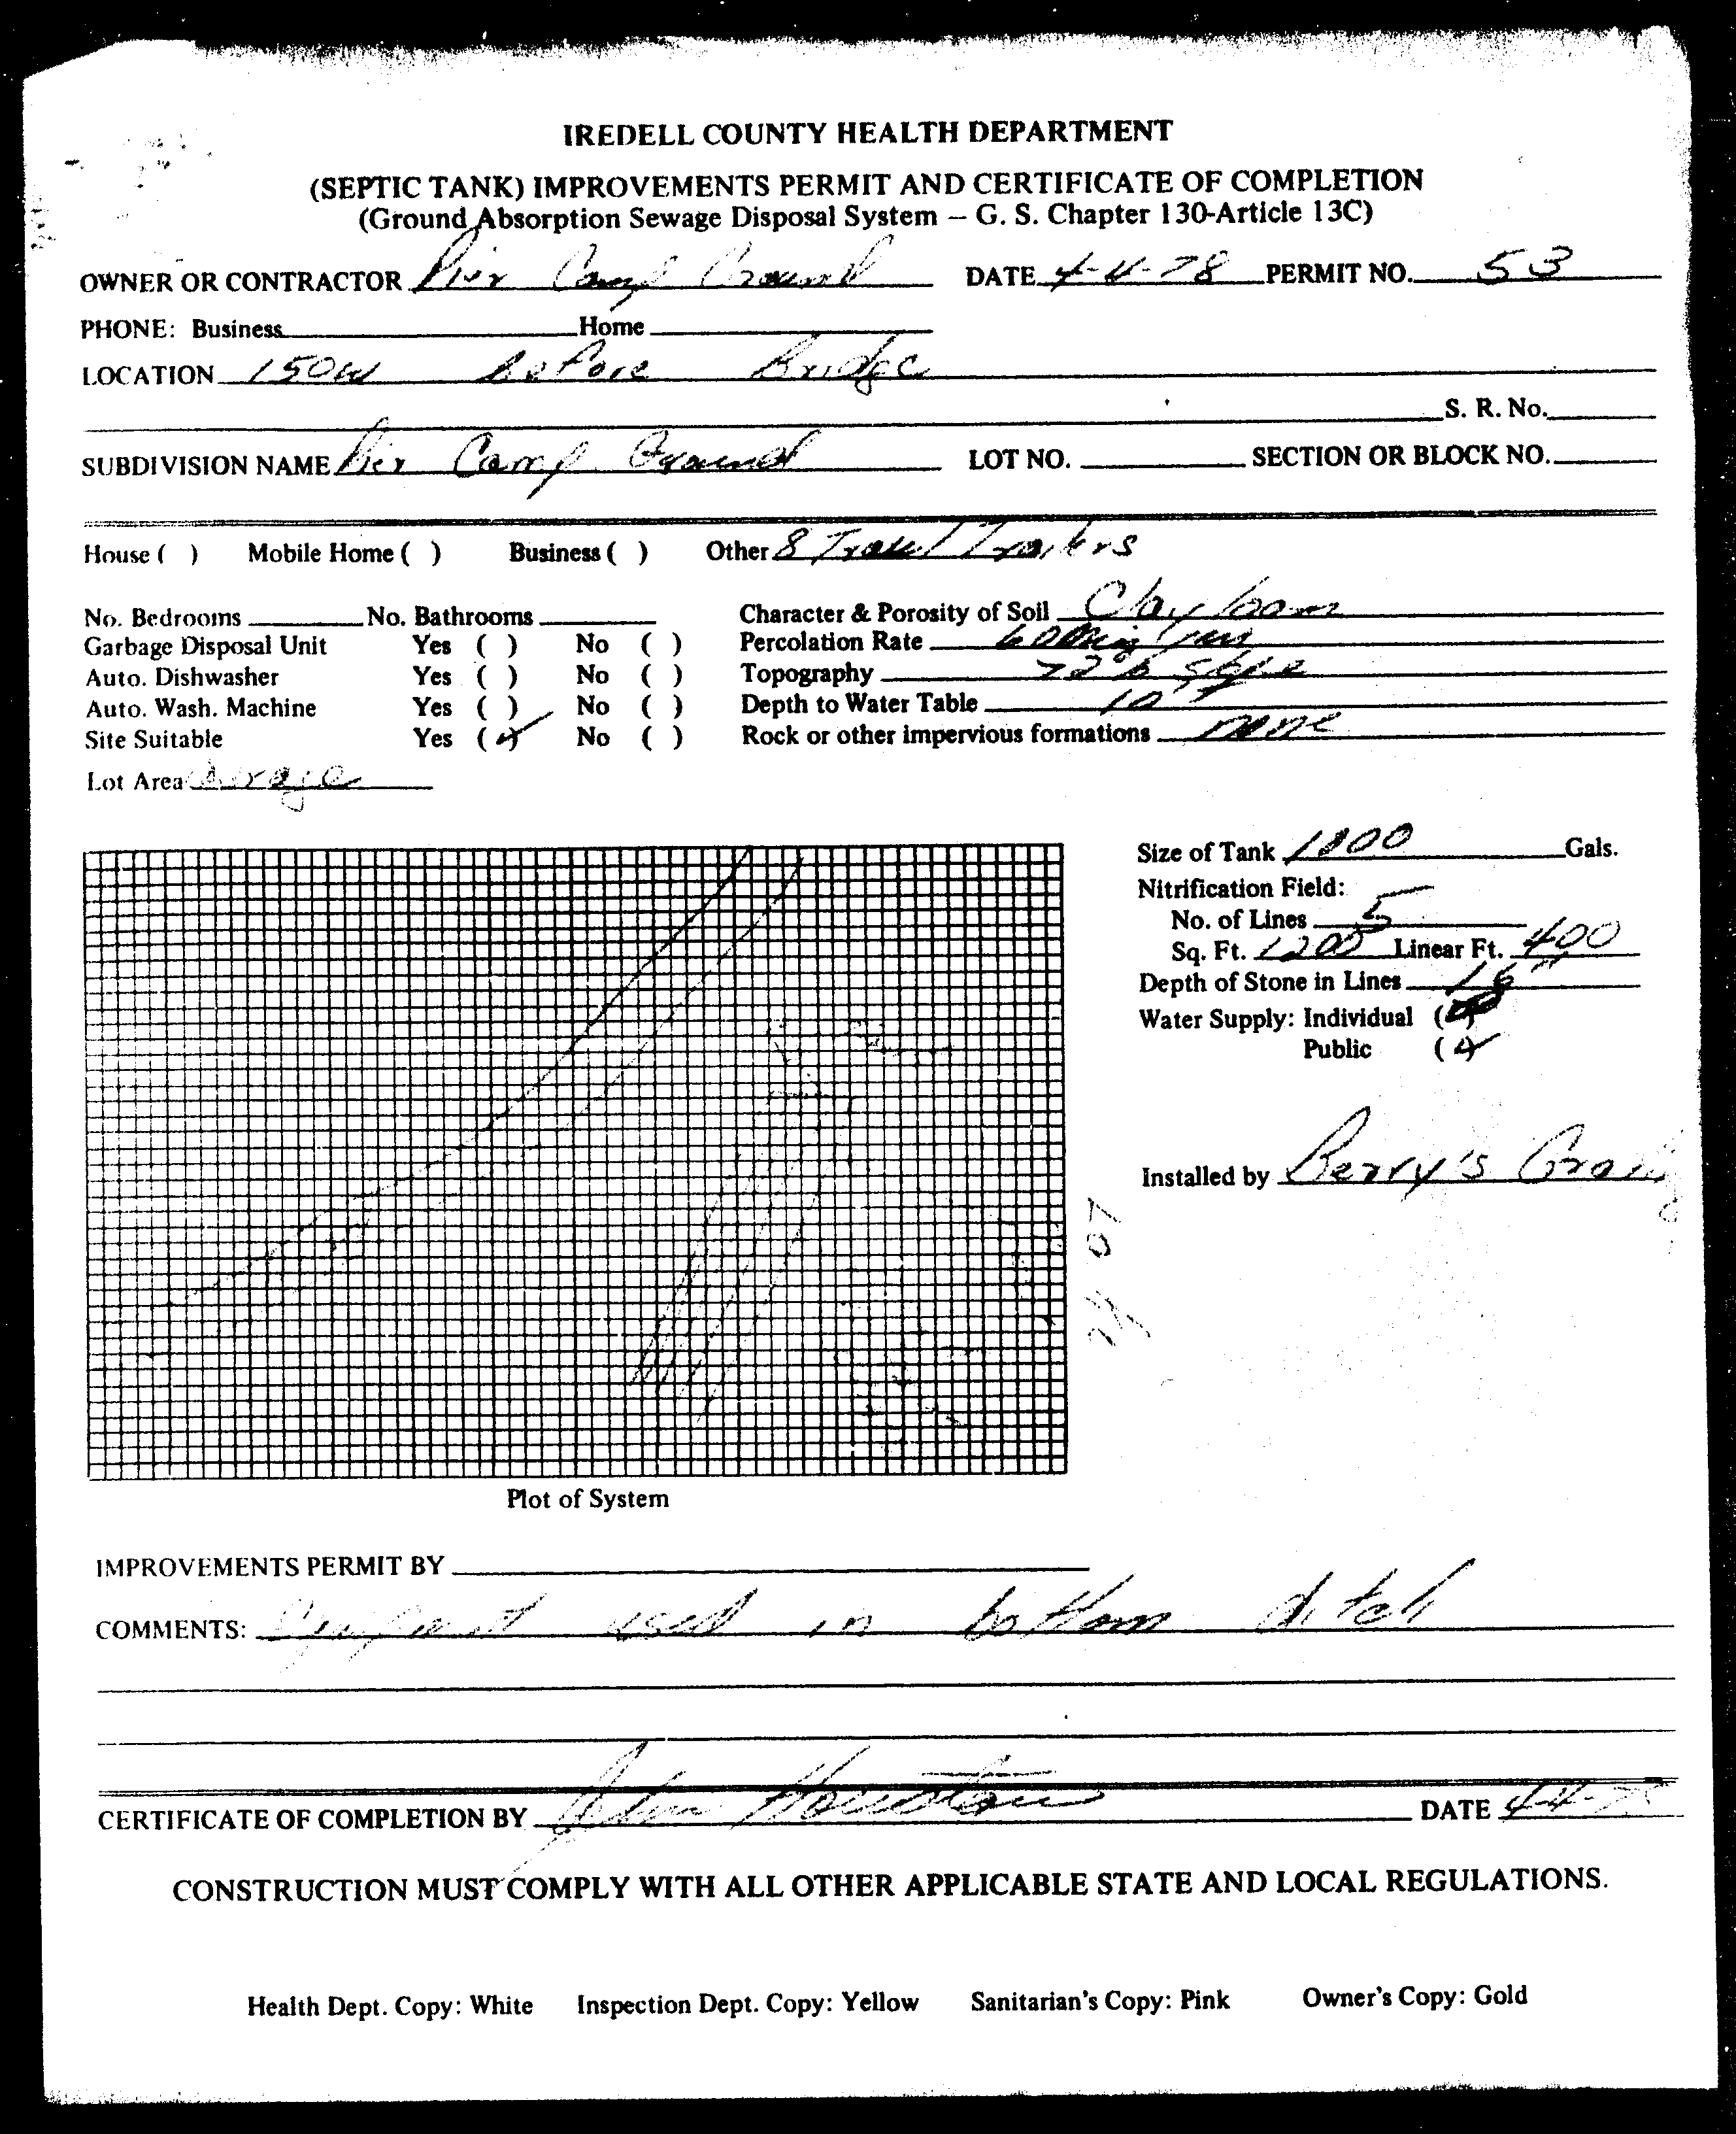 IREDELL COUNTY HEALTH DEPARTMENT
(SEPTIC TANK) IMPROVEMENTS PERMIT AND CERTIFICATE OF COMPLETION
(Ground Absorption Sewage Disposal System – G. S. Chapter 130-Article 13C)
OWNER OR CONTRACTOR Pier Camp Ground DATE 4-4-78 PERMIT NO. 53
PHONE: Business Home
LOCATION 150W before Bridge
S. R. No.
SUBDIVISION NAME Pier Camp Ground LOT NO. SECTION OR BLOCK NO.
House ( ) Mobile Home ( ) Business ( ) Other 8 Travel Trailers
No. Bedrooms No. Bathrooms Character & Porosity of Soil Clay loam
Garbage Disposal Unit Yes ( ) No ( ) Percolation Rate 60 min
Auto. Dishwasher Yes ( ) No ( ) Topography slope
Auto. Wash. Machine Yes ( ) No ( ) Depth to Water Table 10
Site Suitable Yes (✓) No ( ) Rock or other impervious formations none
Lot Area Large
Size of Tank 1800 Gals.
Nitrification Field:
No. of Lines 5
Sq. Ft. 1200 Linear Ft. 400
Depth of Stone in Lines
Water Supply: Individual ( )
Public (✓)
Installed by Berry's
Plot of System
IMPROVEMENTS PERMIT BY
COMMENTS: used in bottom ditch
CERTIFICATE OF COMPLETION BY John DATE 4-4-78
CONSTRUCTION MUST COMPLY WITH ALL OTHER APPLICABLE STATE AND LOCAL REGULATIONS.
Health Dept. Copy: White Inspection Dept. Copy: Yellow Sanitarian's Copy: Pink Owner's Copy: Gold